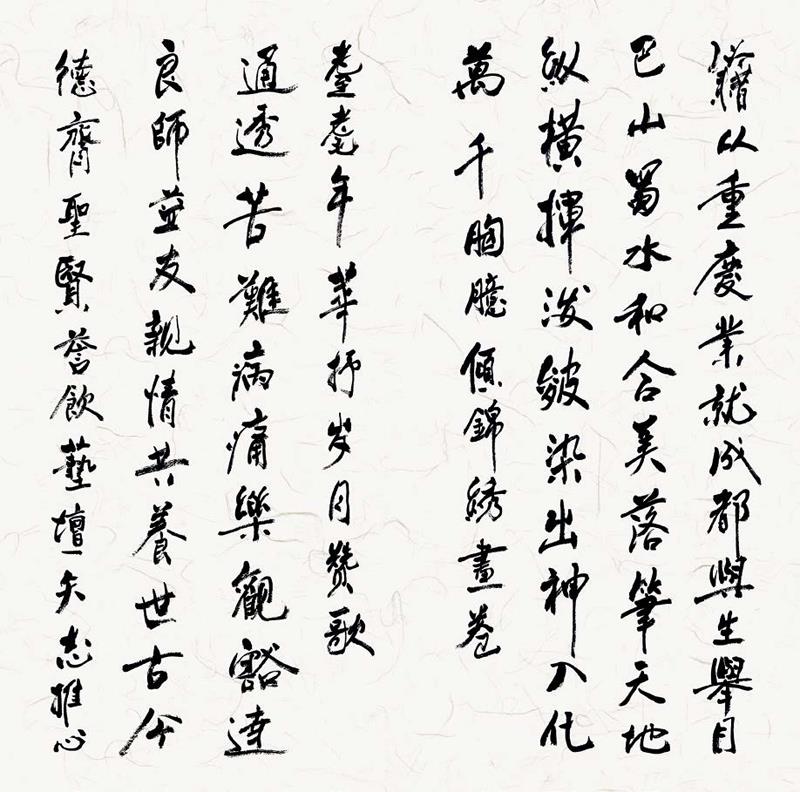 籍从重慶業就成都與生舉目
巴山蜀水和合美落筆天地
纵橫揮泼皴染出神入化
萬千胸臆傾錦綉畫卷
德齊聖賢誉飲藝壇矢志推心
良師益友親情共養世古今
通透苦難病痛樂觀豁達
耋耄年華抒岁月贊歌